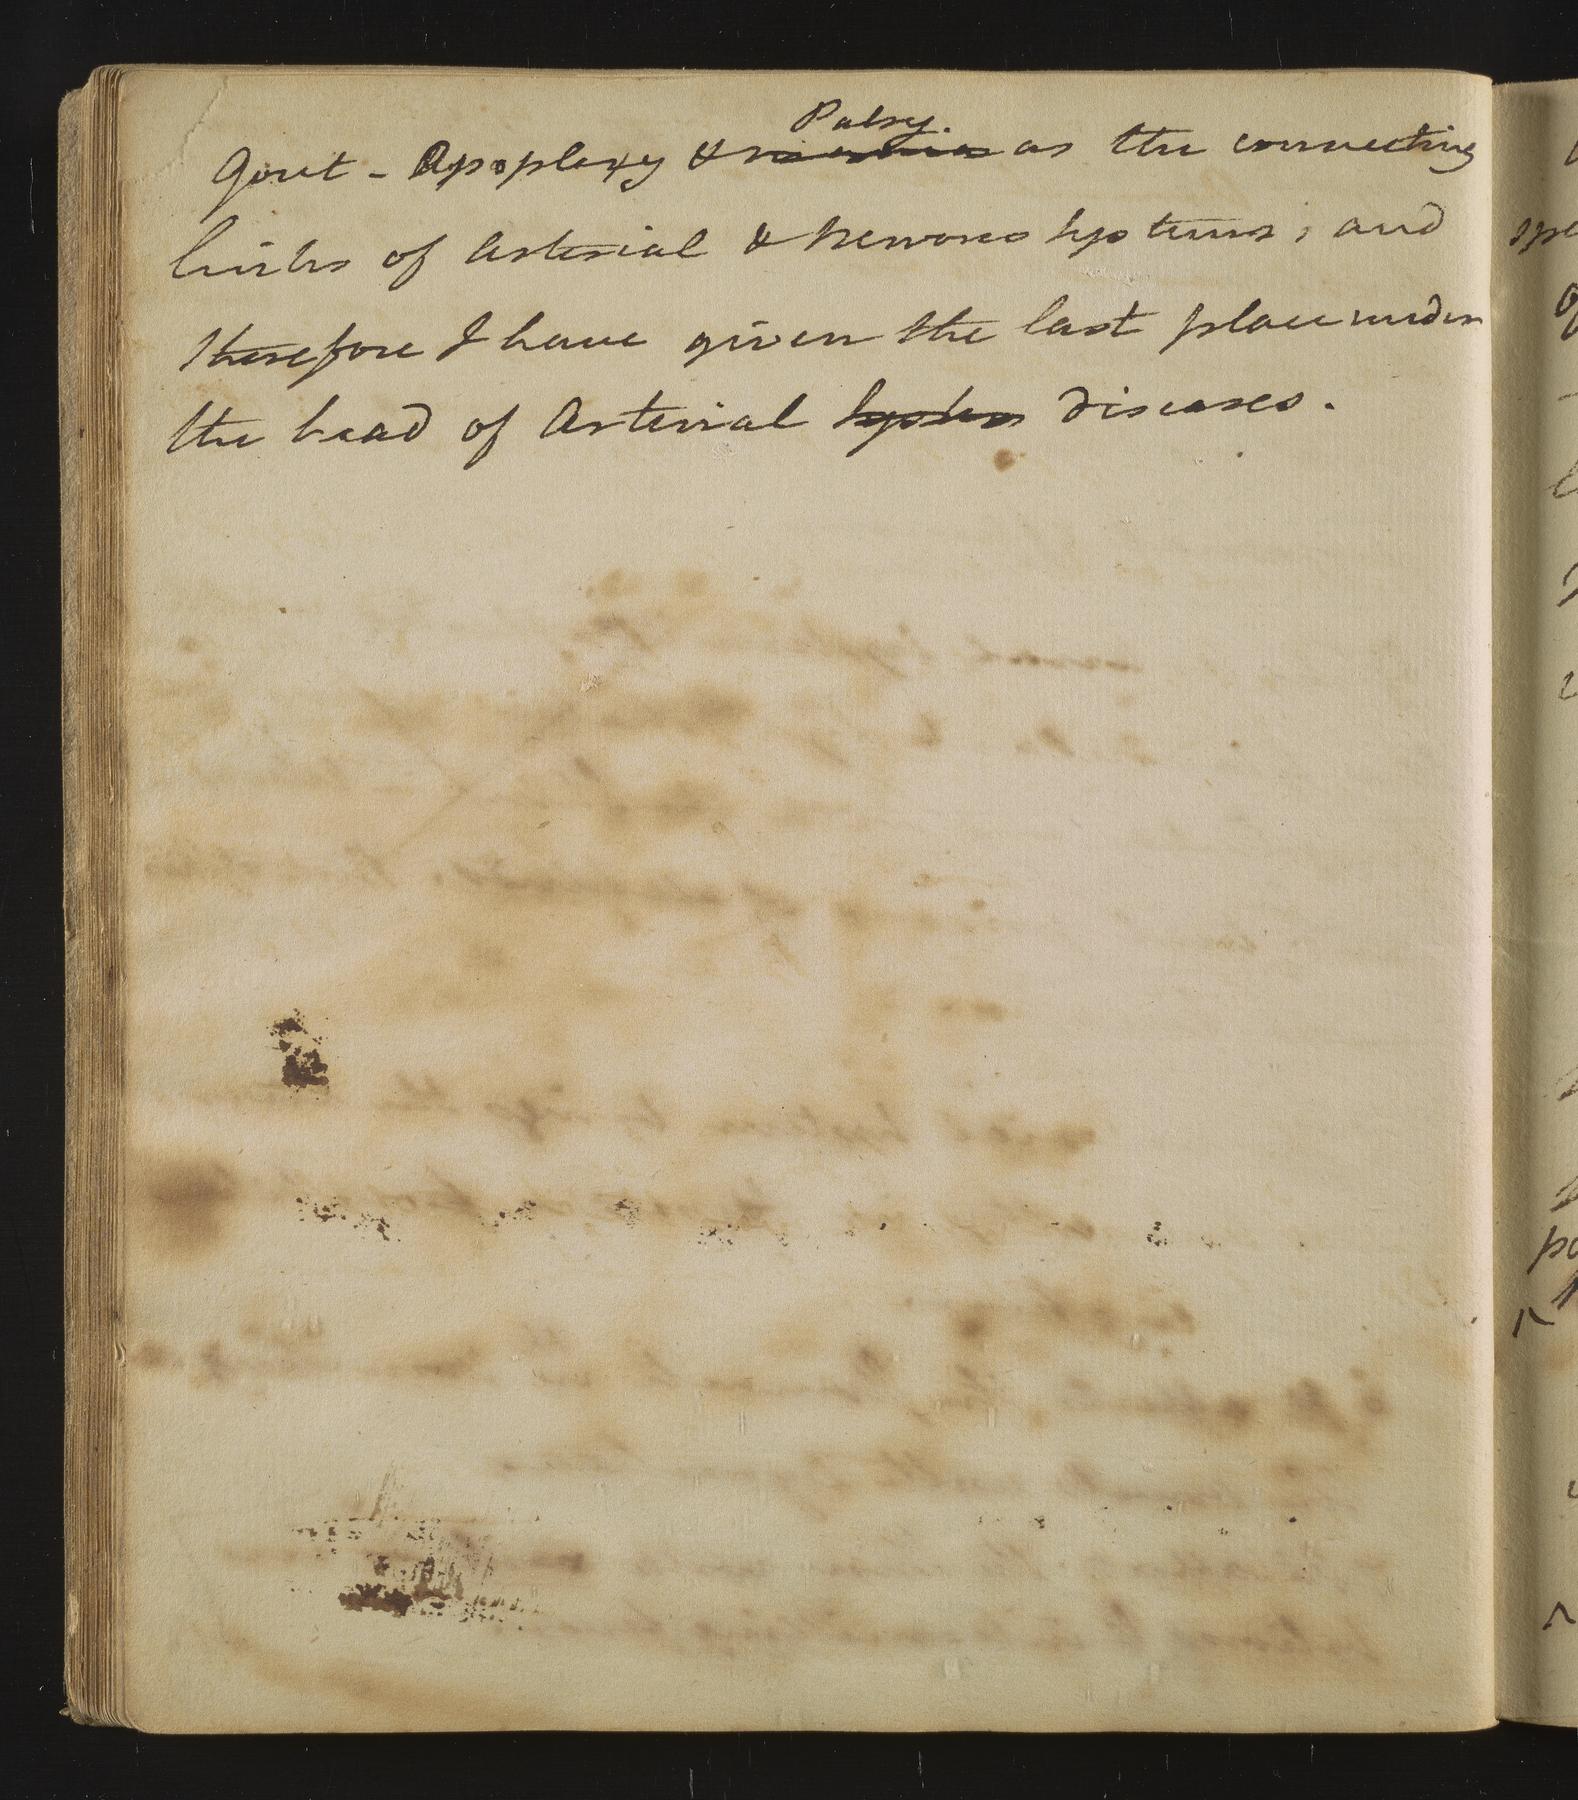 Palsy.
Gout - Apoplexy & as the connecting
links of arterial & Nervous Systems; and
therefore I have given the last place under
the head of Arterial system diseases.